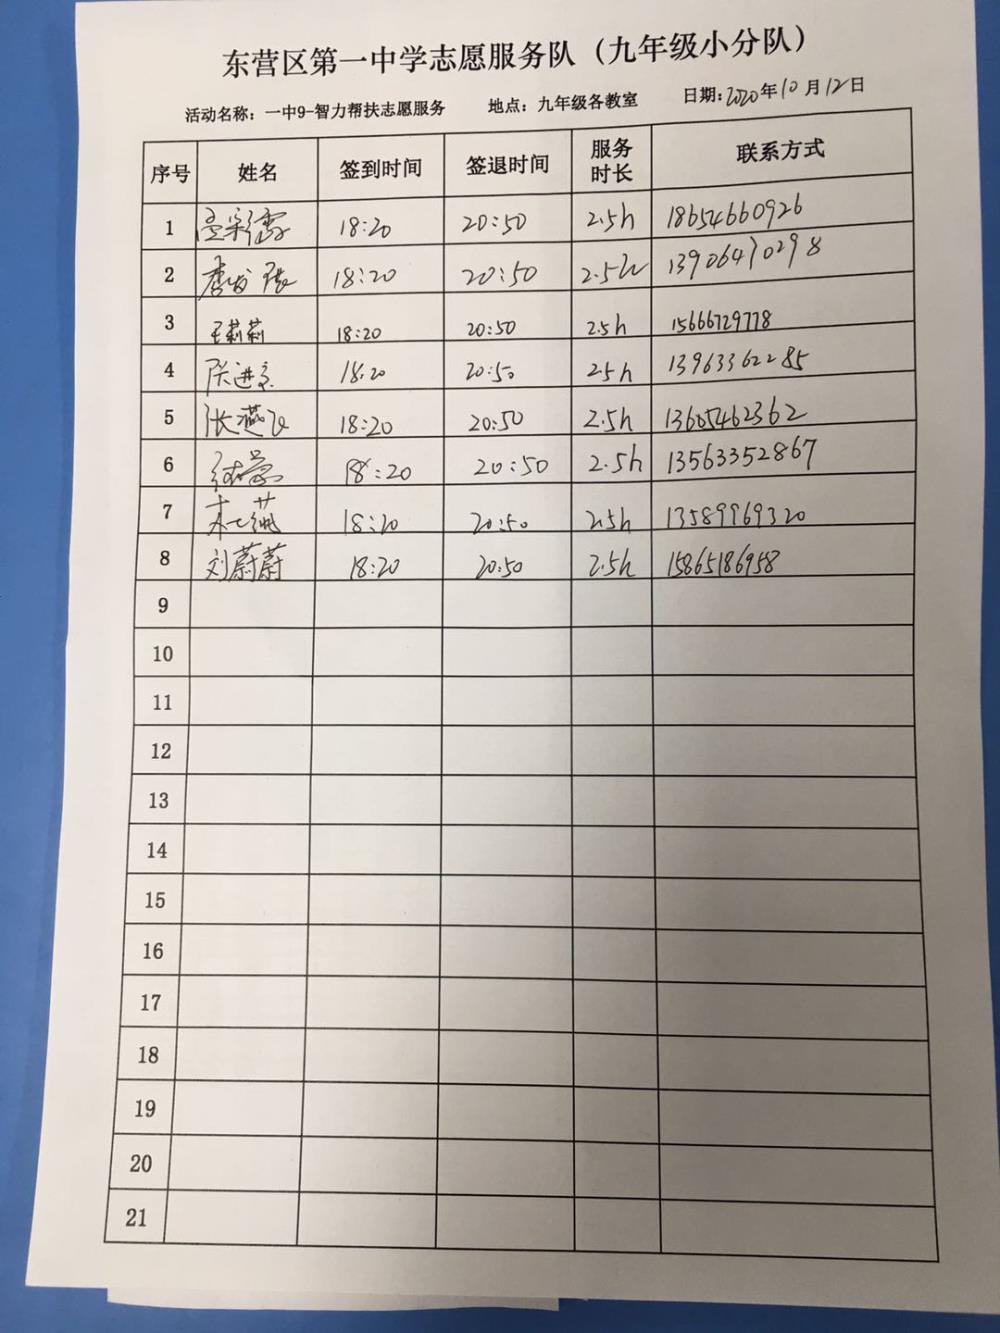 东营区第一中学志愿服务队（九年级小分队）
活动名称：一中9-智力帮扶志愿服务 地点：九年级各教室 日期：2020年10月12日
序号 姓名 签到时间 签退时间 服务时长 联系方式
1 18:20 20:50 2.5h 18654660926
2 18:20 20:50 2.5h 13906470298
3 王莉莉 18:20 20:50 2.5h 15666729778
4 18:20 20:50 2.5h 13963362285
5 张燕飞 18:20 20:50 2.5h 13605462362
6 18:20 20:50 2.5h 13563352867
7 18:20 20:50 2.5h 13589969320
8 刘蔚蔚 18:20 20:50 2.5h 15865186958
9
10
11
12
13
14
15
16
17
18
19
20
21